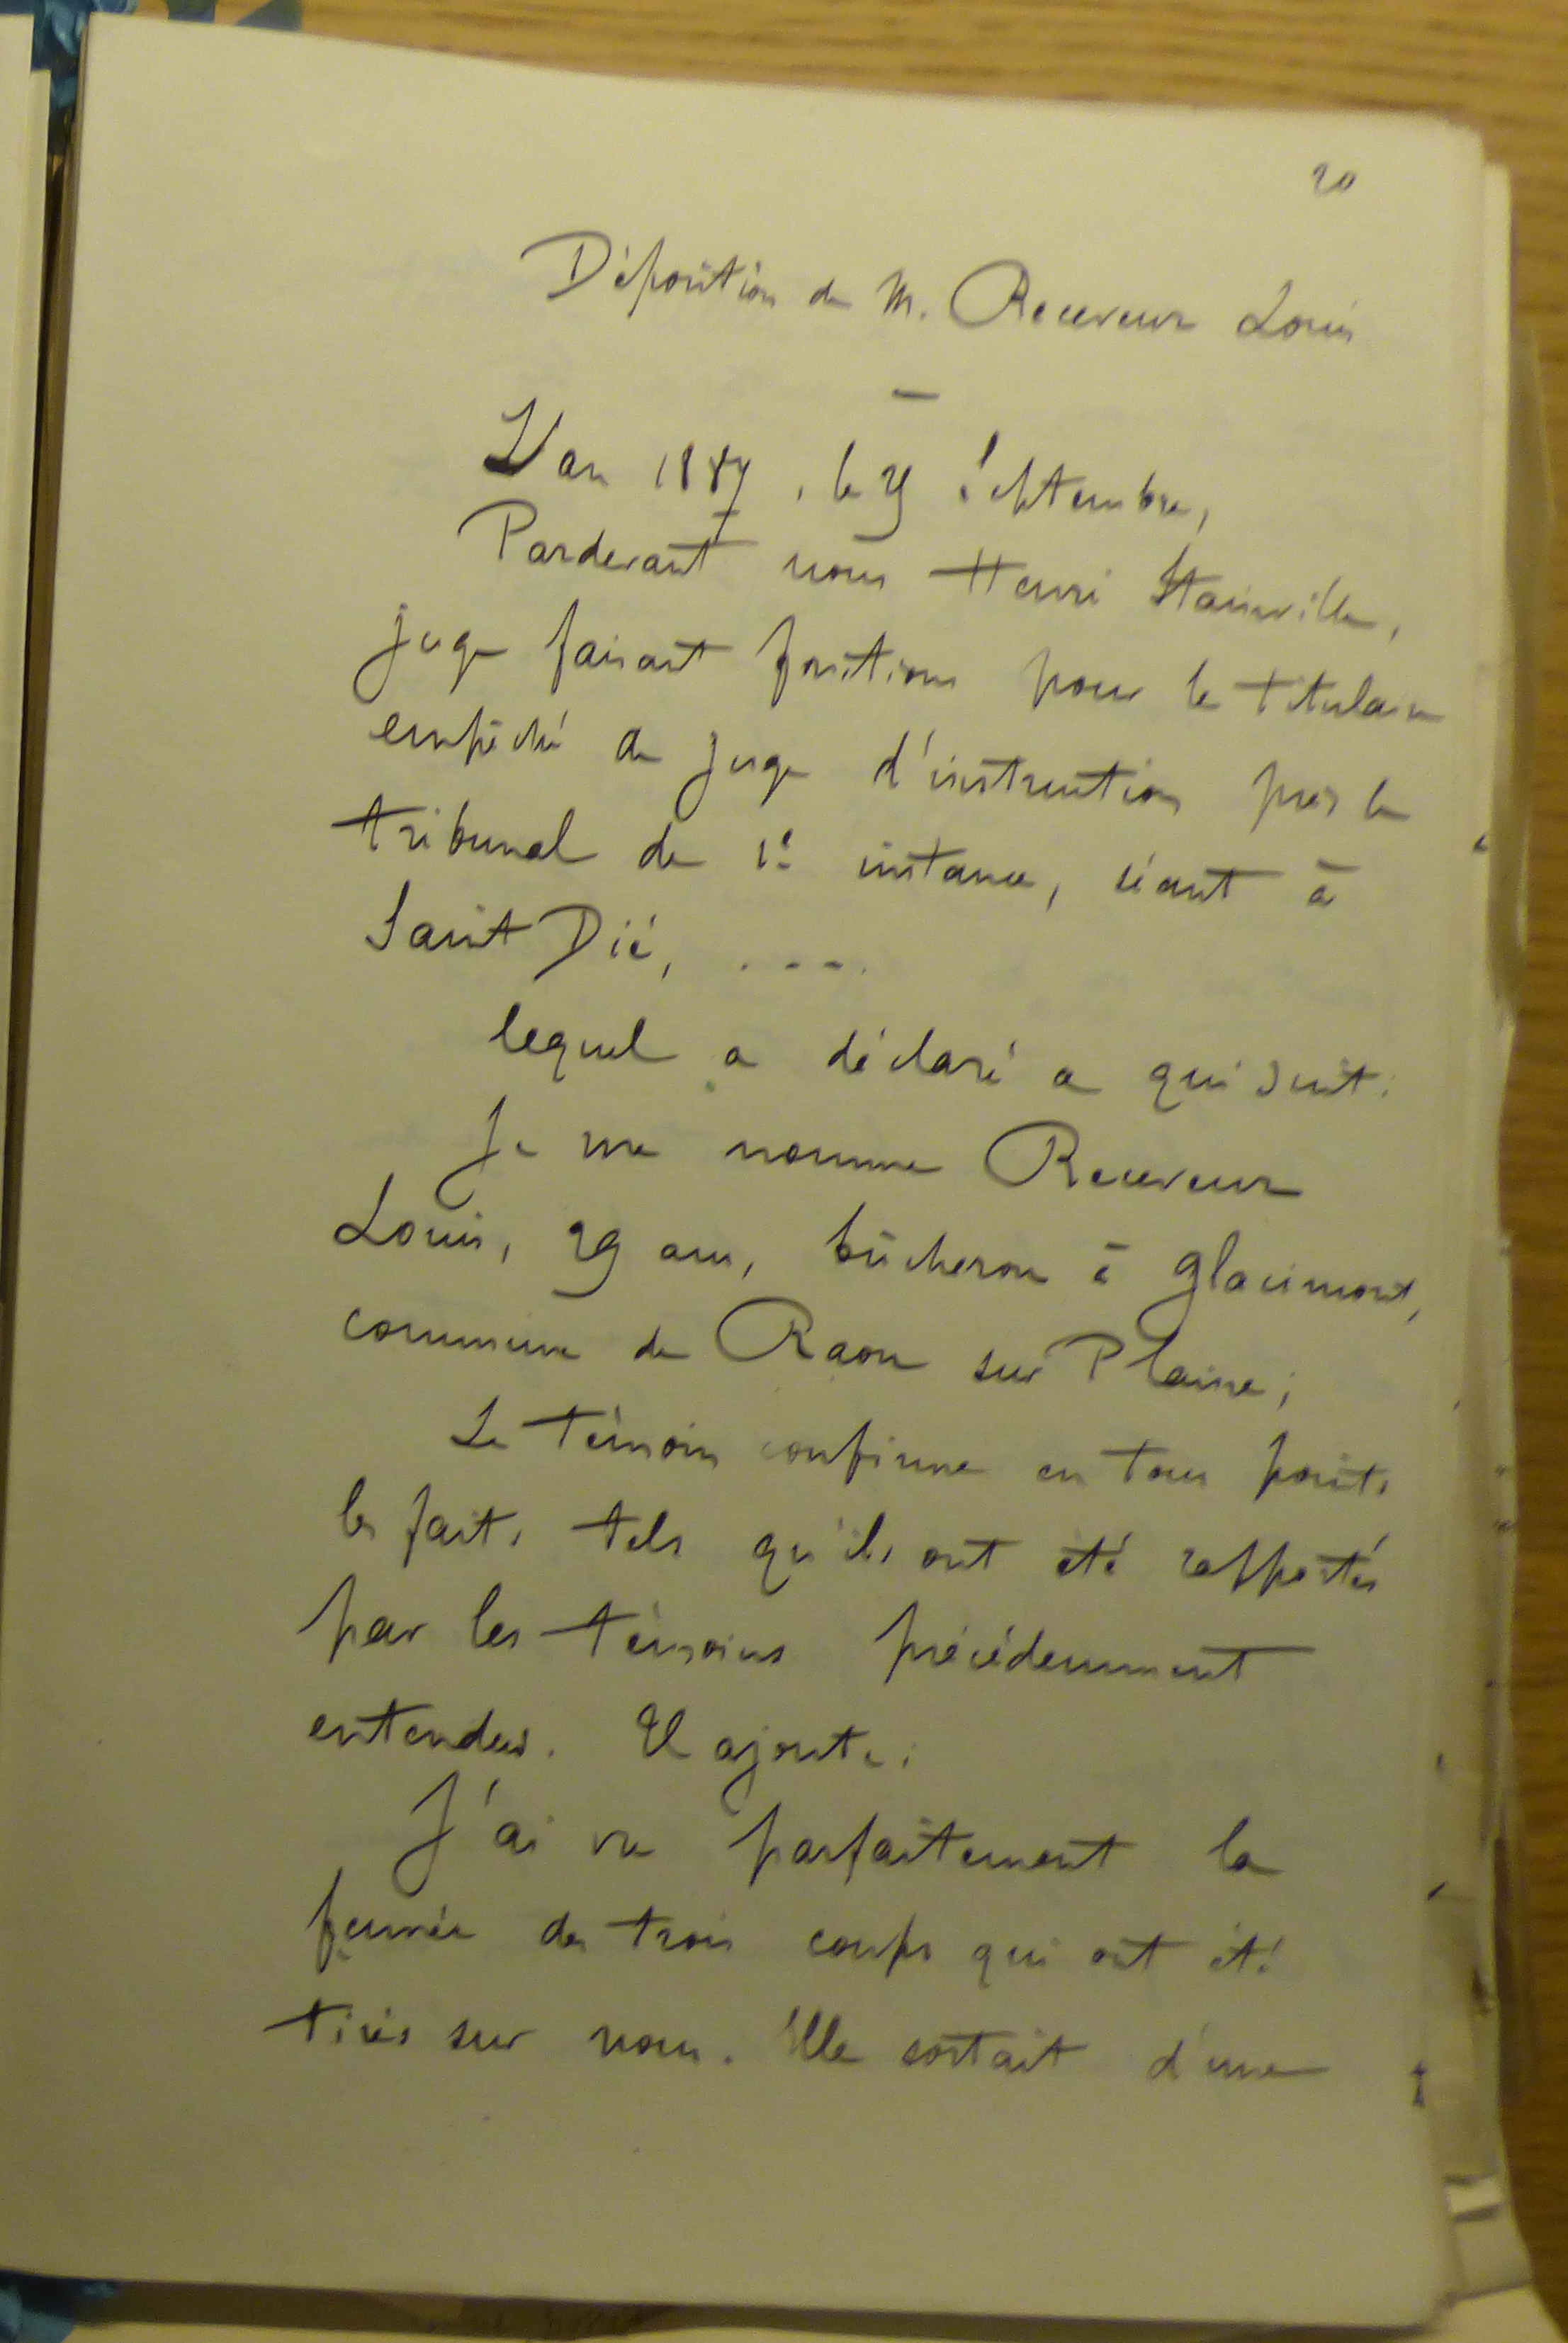 20
Déposition de M. Receveur Louis
—
L'an 1887, le septembre,
Pardevant nous Henri Stainville,
juge faisant fonctions pour le titulaire
empêché de juge d'instruction près le
tribunal de 1e instance, séant à
Saint Dié, ....
lequel a déclaré ce qui suit:
Je me nomme Receveur
Louis, 29 ans, bûcheron à Glacimont,
commune de Raon sur Plaine;
Le témoin confirme en tous points
les faits tels qu'ils ont été rapportés
par les témoins précédemment
entendus. Il ajoute:
J'ai vu parfaitement la
fumée des trois coups qui ont été
tirés sur nous. Elle sortait d'une